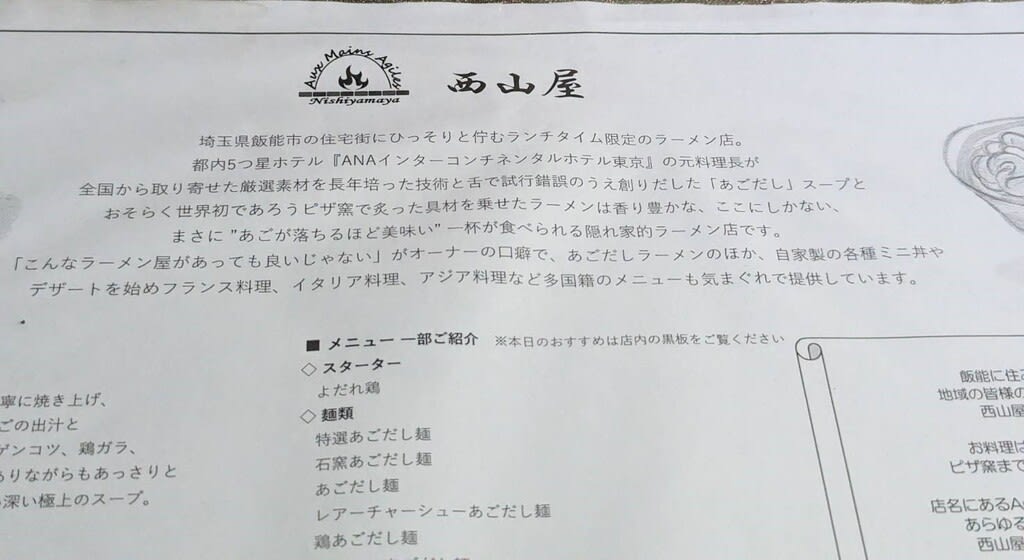 Aux Mains Agiles
Nishiyamaya
西山屋
埼玉県飯能市の住宅街にひっそりと佇むランチタイム限定のラーメン店。
都内5つ星ホテル『ANAインターコンチネンタルホテル東京』の元料理長が
全国から取り寄せた厳選素材を長年培った技術と舌で試行錯誤のうえ創りだした「あごだし」スープと
おそらく世界初であろうピザ窯で炙った具材を乗せたラーメンは香り豊かな、ここにしかない、
まさに "あごが落ちるほど美味い" 一杯が食べられる隠れ家的ラーメン店です。
「こんなラーメン屋があっても良いじゃない」がオーナーの口癖で、あごだしラーメンのほか、自家製の各種ミニ丼や
デザートを始めフランス料理、イタリア料理、アジア料理など多国籍のメニューも気まぐれで提供しています。
寧に焼き上げ、
ごの出汁と
ゲンコツ、鶏ガラ、
ありながらもあっさりと
深い極上のスープ。
■ メニュー 一部ご紹介 ※本日のおすすめは店内の黒板をご覧ください
◇ スターター
よだれ鶏
◇ 麺類
特選あごだし麺
石窯あごだし麺
あごだし麺
レアーチャーシューあごだし麺
鶏あごだし麺
飯能に住
地域の皆様の
西山屋
お料理は
ピザ窯まで
店名にあるA
あらゆる
西山屋